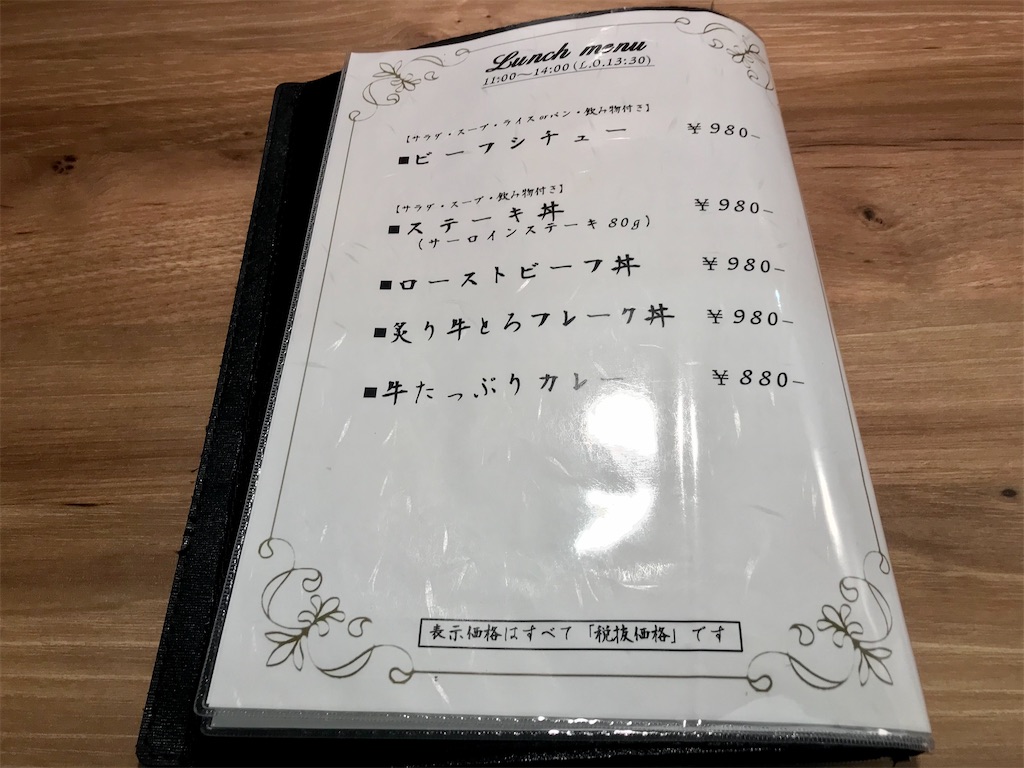 Lunch menu
11:00～14:00(L.O.13:30)
【サラダ・スープ・ライスorパン・飲み物付き】
■ビーフシチュー ￥980-
【サラダ・スープ・飲み物付き】
■ステーキ丼 ￥980-
(サーロインステーキ80g)
■ローストビーフ丼 ￥980-
■炙り牛とろフレーク丼 ￥980-
■牛たっぷりカレー ￥880-
表示価格はすべて「税抜価格」です